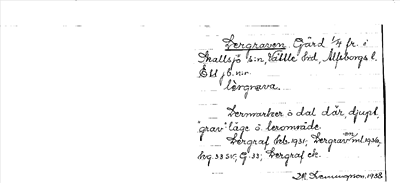 Lergraven. Gård 1/4 fr. i
Skallsjö s:n, Vättle hd, Älfsborgs l.
Ett jb.n:r.
lèrgrava.
Lermarker o dal där, djupt,
"grav"läge o. lerområde.
Lergraf Jeb. 1931; Lergraven ml 1936,
hg. 33 SV; G. 33; Lergraf ek.
1938